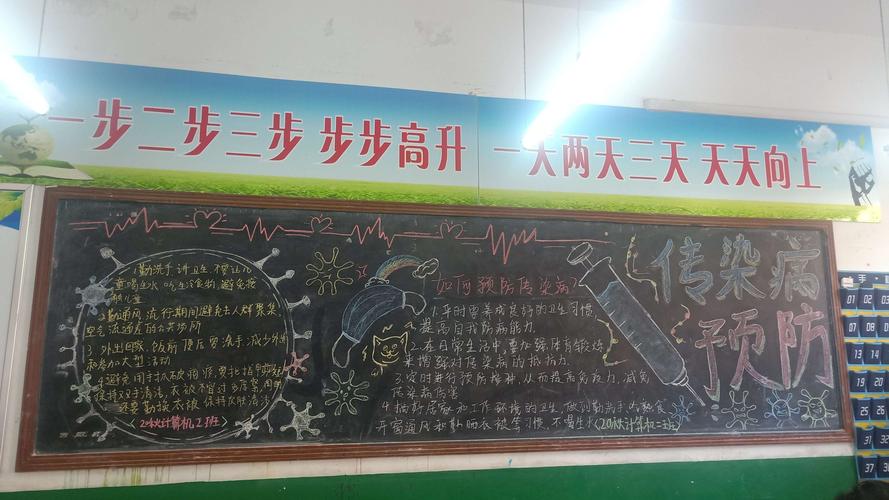 一步二步三步 步步高升 一天两天三天 天天向上
1勤洗手 讲卫生 不要让儿
童喝生水 吃生冷食物,避免疫
2勤通风 流行期间避免去人群聚集
空气流通差的公共场所
3.外出回家、饭前便后要洗手 减少外出
和参加大型活动
保持双手清洁,衣被不宜过多过厚,
还要勤换衣被 保持衣服清洁
(20秋计算机2班)
如何预防传染病?
1.平时要养成良好的卫生习惯,
提高自我防病能力.
2.在日常生活中要加强体育锻炼
来增强对传染病的抵抗力.
3.按时进行预防接种,从而提高免疫力,减免
传染病伤害
4.搞好居家和工作环境的卫生,做到勤洗手,吃熟食
开窗通风和勤晒衣被等习惯,不喝生水(20秋计算机二班)
传染病
预防
01 02 03
07 08 09
13 14 15
19 20 21
25 26 27
31 32 33
37 38